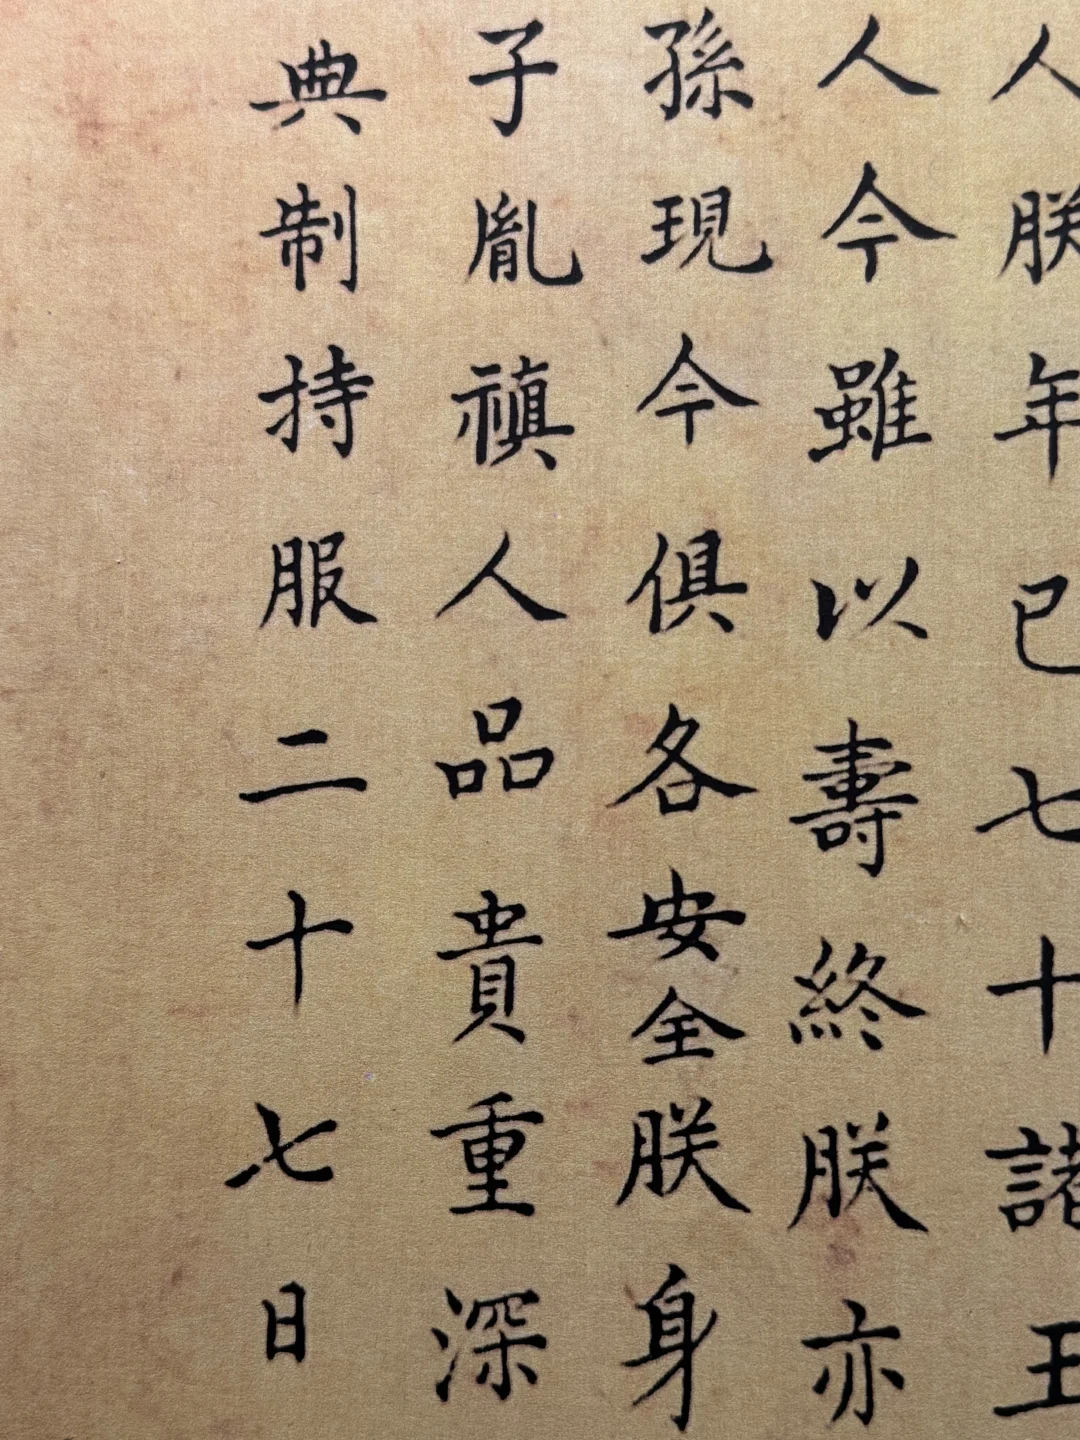 人朕年已七十諸王
人今雖以壽終朕亦
孫現今俱各安全朕身
子胤禛人品貴重深
典制持服二十七日